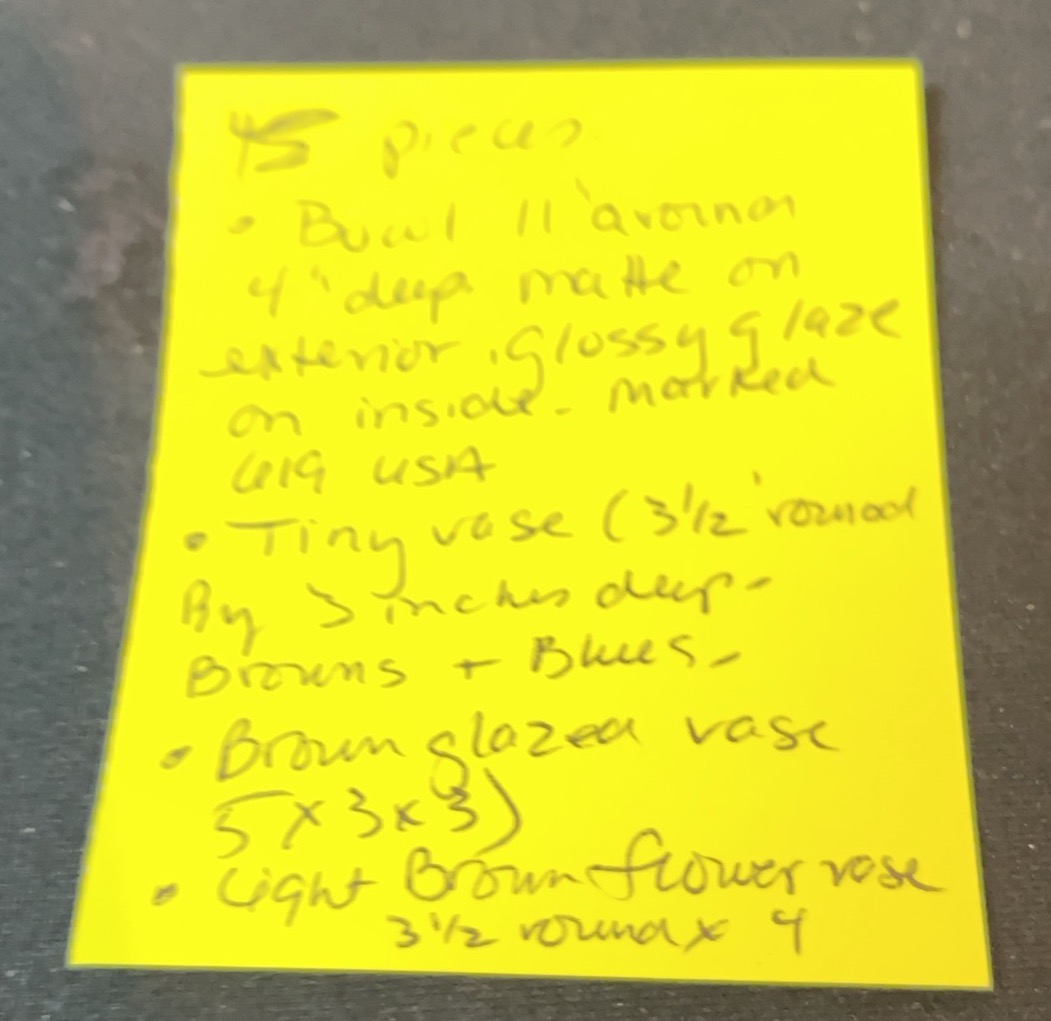 pieces
• Bowl 11" around
4" deep matte on
exterior. glossy glaze
on inside - marked
619 USA
• Tiny vase (3 1/2" round
By 3 inches deep-
Browns + Blues -
• Brown glazed vase
5 x 3 x 3)
• Light Brown flower vase
3 1/2 round x 4